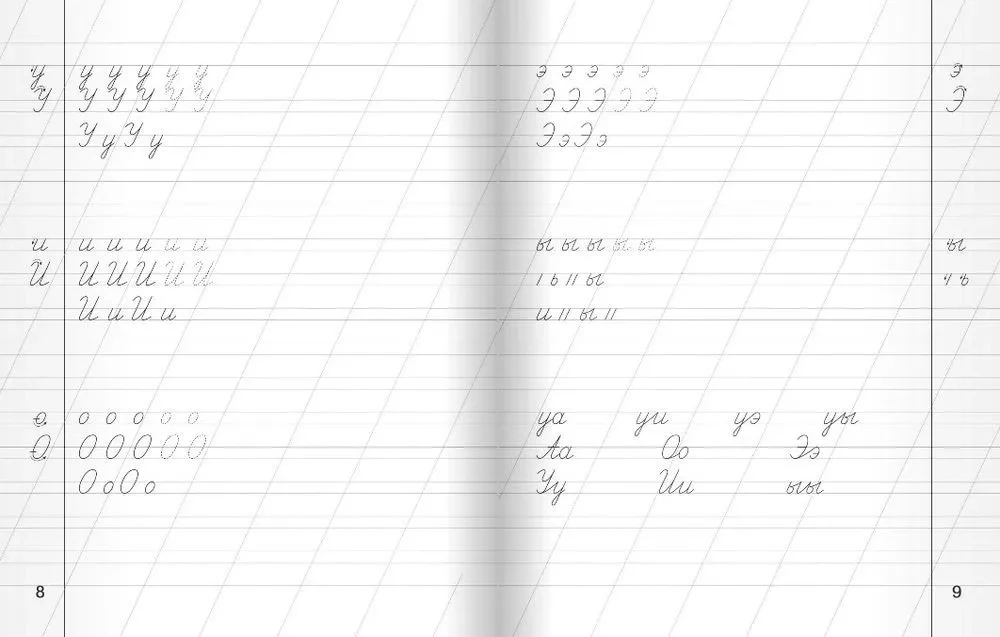 у у у у у у
У У У У У У
У у У у
и и и и и и
И И И И И И
И и И и
о о о о о о
О О О О О О
О о О о
8
э э э э э э
Э Э Э Э Э Э
Э э Э э
ы ы ы ы ы ы
ь ы ь
и ы
уа уи уэ уы
Аа Оо Ээ
Уу Ии ыы
9